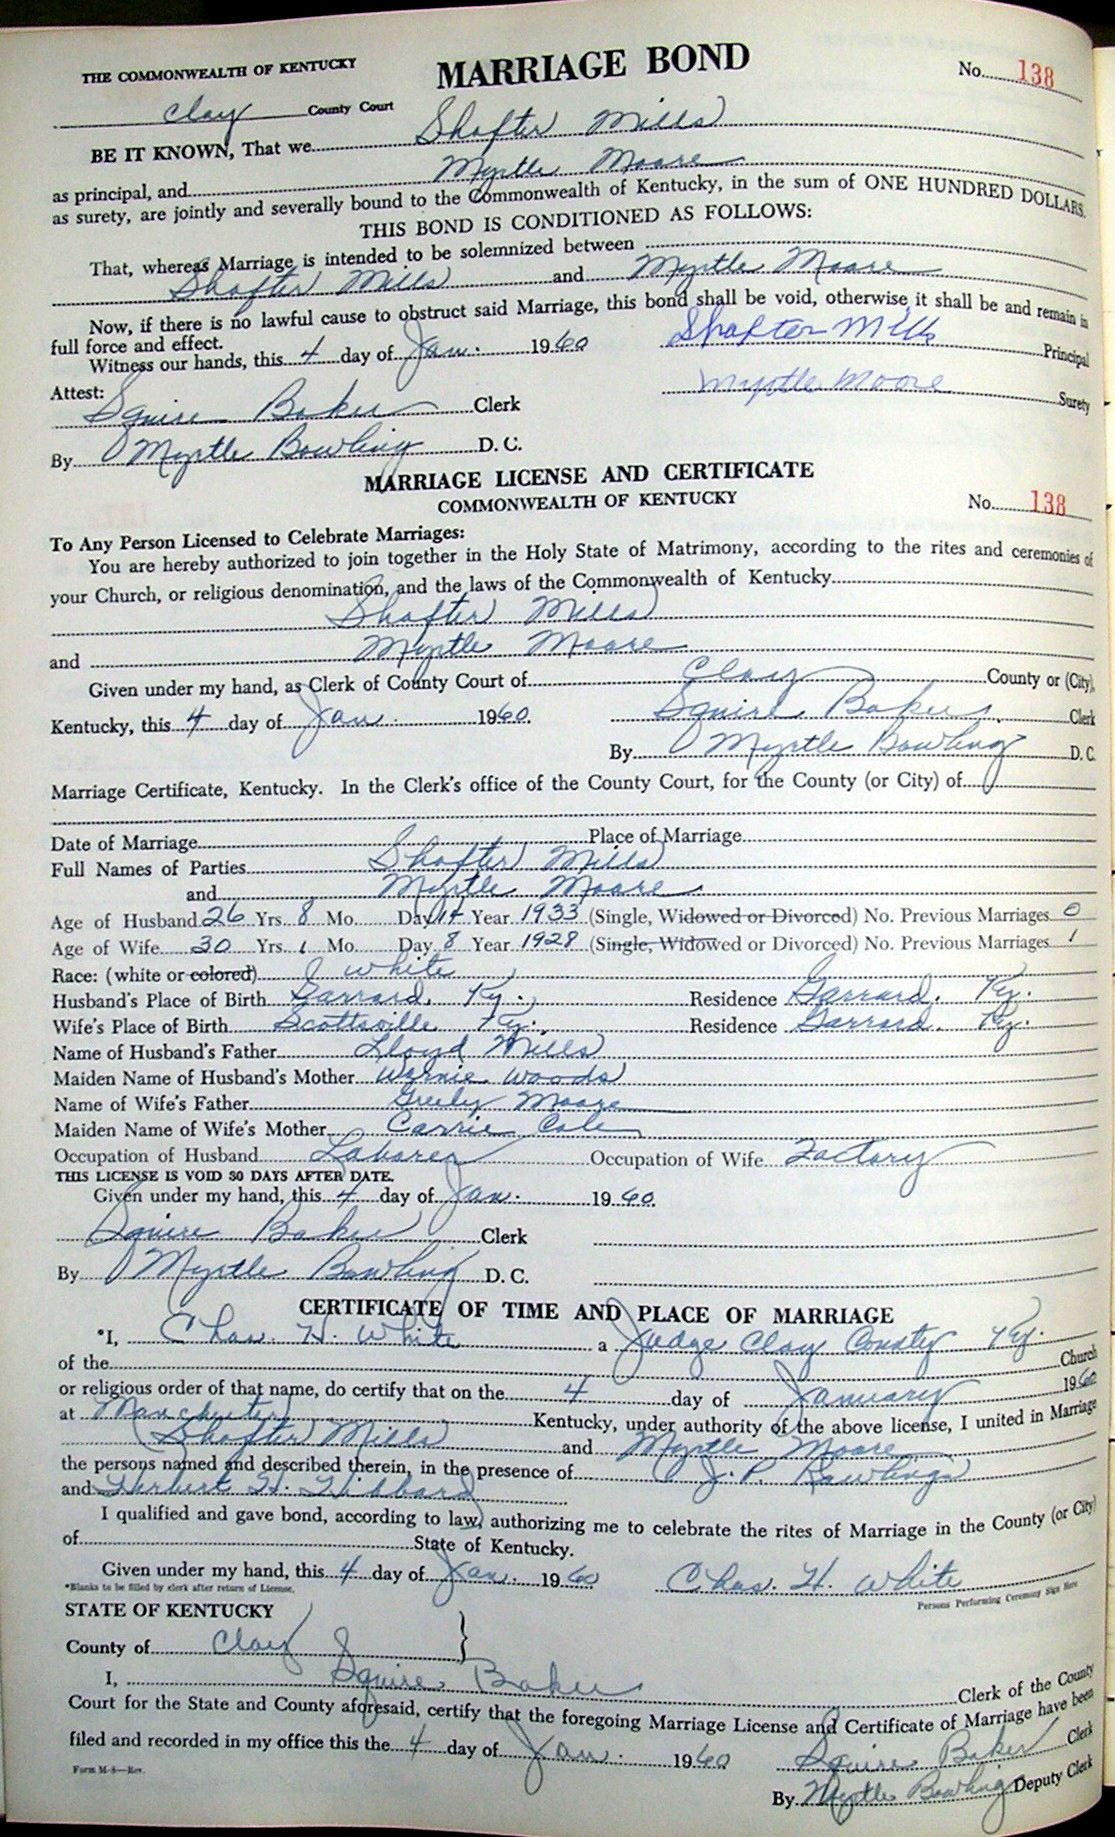 THE COMMONWEALTH OF KENTUCKY
MARRIAGE BOND
No. 138
Clay County Court
BE IT KNOWN, That we Shafter Mills
as principal, and Myrtle Moore
as surety, are jointly and severally bound to the Commonwealth of Kentucky, in the sum of ONE HUNDRED DOLLARS.
THIS BOND IS CONDITIONED AS FOLLOWS:
That, whereas Marriage is intended to be solemnized between
Shafter Mills and Myrtle Moore
Now, if there is no lawful cause to obstruct said Marriage, this bond shall be void, otherwise it shall be and remain in
full force and effect.
Witness our hands, this 4 day of Jan. 1960 Shafter Mills Principal
Attest: Myrtle Moore Surety
Squire Baker Clerk
By Myrtle Bowling D. C.
MARRIAGE LICENSE AND CERTIFICATE
COMMONWEALTH OF KENTUCKY No. 138
To Any Person Licensed to Celebrate Marriages:
You are hereby authorized to join together in the Holy State of Matrimony, according to the rites and ceremonies of
your Church, or religious denomination, and the laws of the Commonwealth of Kentucky
Shafter Mills
and Myrtle Moore
Given under my hand, as Clerk of County Court of Clay County or (City),
Kentucky, this 4 day of Jan. 1960. Squire Baker Clerk
By Myrtle Bowling D. C.
Marriage Certificate, Kentucky. In the Clerk's office of the County Court, for the County (or City) of
Date of Marriage Place of Marriage
Full Names of Parties Shafter Mills
and Myrtle Moore
Age of Husband 26 Yrs. 8 Mo. Day 14 Year 1933 (Single, Widowed or Divorced) No. Previous Marriages 0
Age of Wife 30 Yrs. 1 Mo. Day 8 Year 1928 (Single, Widowed or Divorced) No. Previous Marriages 1
Race: (white or colored) white
Husband's Place of Birth Garrard, Ky. Residence Garrard, Ky.
Wife's Place of Birth Scottsville Ky. Residence Garrard, Ky.
Name of Husband's Father Lloyd Mills
Maiden Name of Husband's Mother Woods
Name of Wife's Father Greely Moore
Maiden Name of Wife's Mother Carrie Cole
Occupation of Husband Laborer Occupation of Wife Factory
THIS LICENSE IS VOID 30 DAYS AFTER DATE.
Given under my hand, this 4 day of Jan. 1960.
Squire Baker Clerk
By Myrtle Bowling D. C.
CERTIFICATE OF TIME AND PLACE OF MARRIAGE
*I, Chas. H. White a Judge Clay County Ky.
of the Church
or religious order of that name, do certify that on the 4 day of January 1960
at Manchester Kentucky, under authority of the above license, I united in Marriage
Shafter Mills and Myrtle Moore
the persons named and described therein, in the presence of J. P. Rawlings
and Herbert H. Hibbard
I qualified and gave bond, according to law, authorizing me to celebrate the rites of Marriage in the County (or City)
of State of Kentucky.
Given under my hand, this 4 day of Jan. 1960 Chas. H. White
*Blanks to be filled by clerk after return of License. Persons Performing Ceremony Sign Here
STATE OF KENTUCKY
County of Clay
I, Squire Baker Clerk of the County
Court for the State and County aforesaid, certify that the foregoing Marriage License and Certificate of Marriage have been
filed and recorded in my office this the 4 day of Jan. 1960 Squire Baker Clerk
Form M-8—Rev. By Myrtle Bowling Deputy Clerk